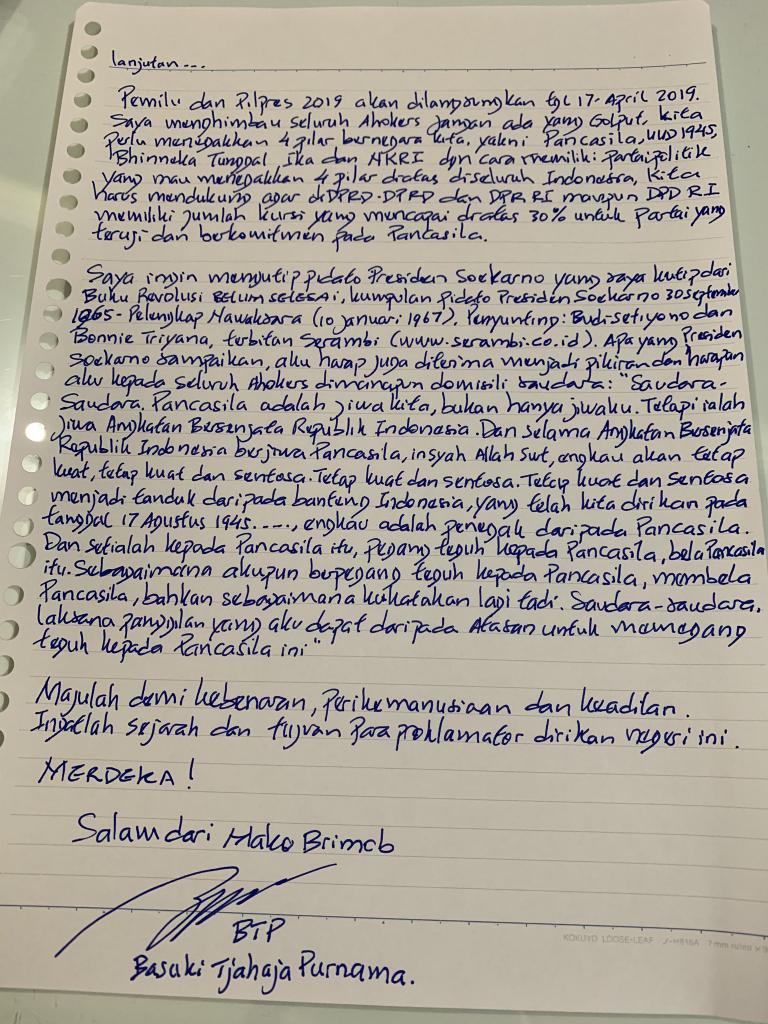 lanjutan...
Pemilu dan Pilpres 2019 akan dilangsungkan tgl 17-April 2019.
Saya menghimbau seluruh Ahokers jangan ada yang Golput, kita
perlu menegakkan 4 pilar bernegara kita, yakni Pancasila, UUD 1945,
Bhinneka Tunggal Ika dan NKRI dgn cara memiliki partai politik
yang mau menegakkan 4 pilar diatas diseluruh Indonesia, Kita
harus mendukung agar di DPRD-DPRD dan DPR RI maupun DPD RI
memiliki jumlah kursi yang mencapai diatas 30% untuk Partai yang
teruji dan berkomitmen pada Pancasila.
Saya ingin mengutip pidato Presiden Soekarno yang saya kutip dari
Buku Revolusi BELUM SELESAI, kumpulan pidato Presiden Soekarno 30 September
1965- Pelengkap Nawaksara (10 januari 1967). Penyunting: Budi setiyono dan
Bonnie Triyana, terbitan Serambi (www.serambi.co.id). Apa yang Presiden
Soekarno sampaikan, aku harap juga diterima menjadi pikiran dan harapan
aku kepada seluruh Ahokers dimanapun domisili saudara: "Saudara-
Saudara. Pancasila adalah jiwa kita, bukan hanya jiwaku. Tetapi ialah
jiwa Angkatan Bersenjata Republik Indonesia. Dan selama Angkatan Bersenjata
Republik Indonesia berjiwa Pancasila, insyah Allah Swt, engkau akan tetap
kuat, tetap kuat dan sentosa. Tetap kuat dan sentosa. Tetap kuat dan sentosa
menjadi tanduk daripada banteng Indonesia, yang telah kita dirikan pada
tanggal 17 Agustus 1945....., engkau adalah penegak daripada Pancasila.
Dan setialah kepada Pancasila itu, pegang teguh kepada Pancasila, bela Pancasila
itu. Sebagaimana akupun berpegang teguh kepada Pancasila, membela
Pancasila, bahkan sebagaimana kukatakan lagi tadi. Saudara-saudara,
laksana panggilan yang aku dapat daripada Atasan untuk memegang
teguh kepada Pancasila ini"
Majulah demi kebenaran, perikemanusiaan dan keadilan.
Ingatlah sejarah dan tujuan para proklamator dirikan negeri ini.
MERDEKA!
Salam dari Mako Brimob
BTP
Basuki Tjahaja Purnama.
KOKUYO LOOSE-LEAF ノ-H816A 7mm ruled